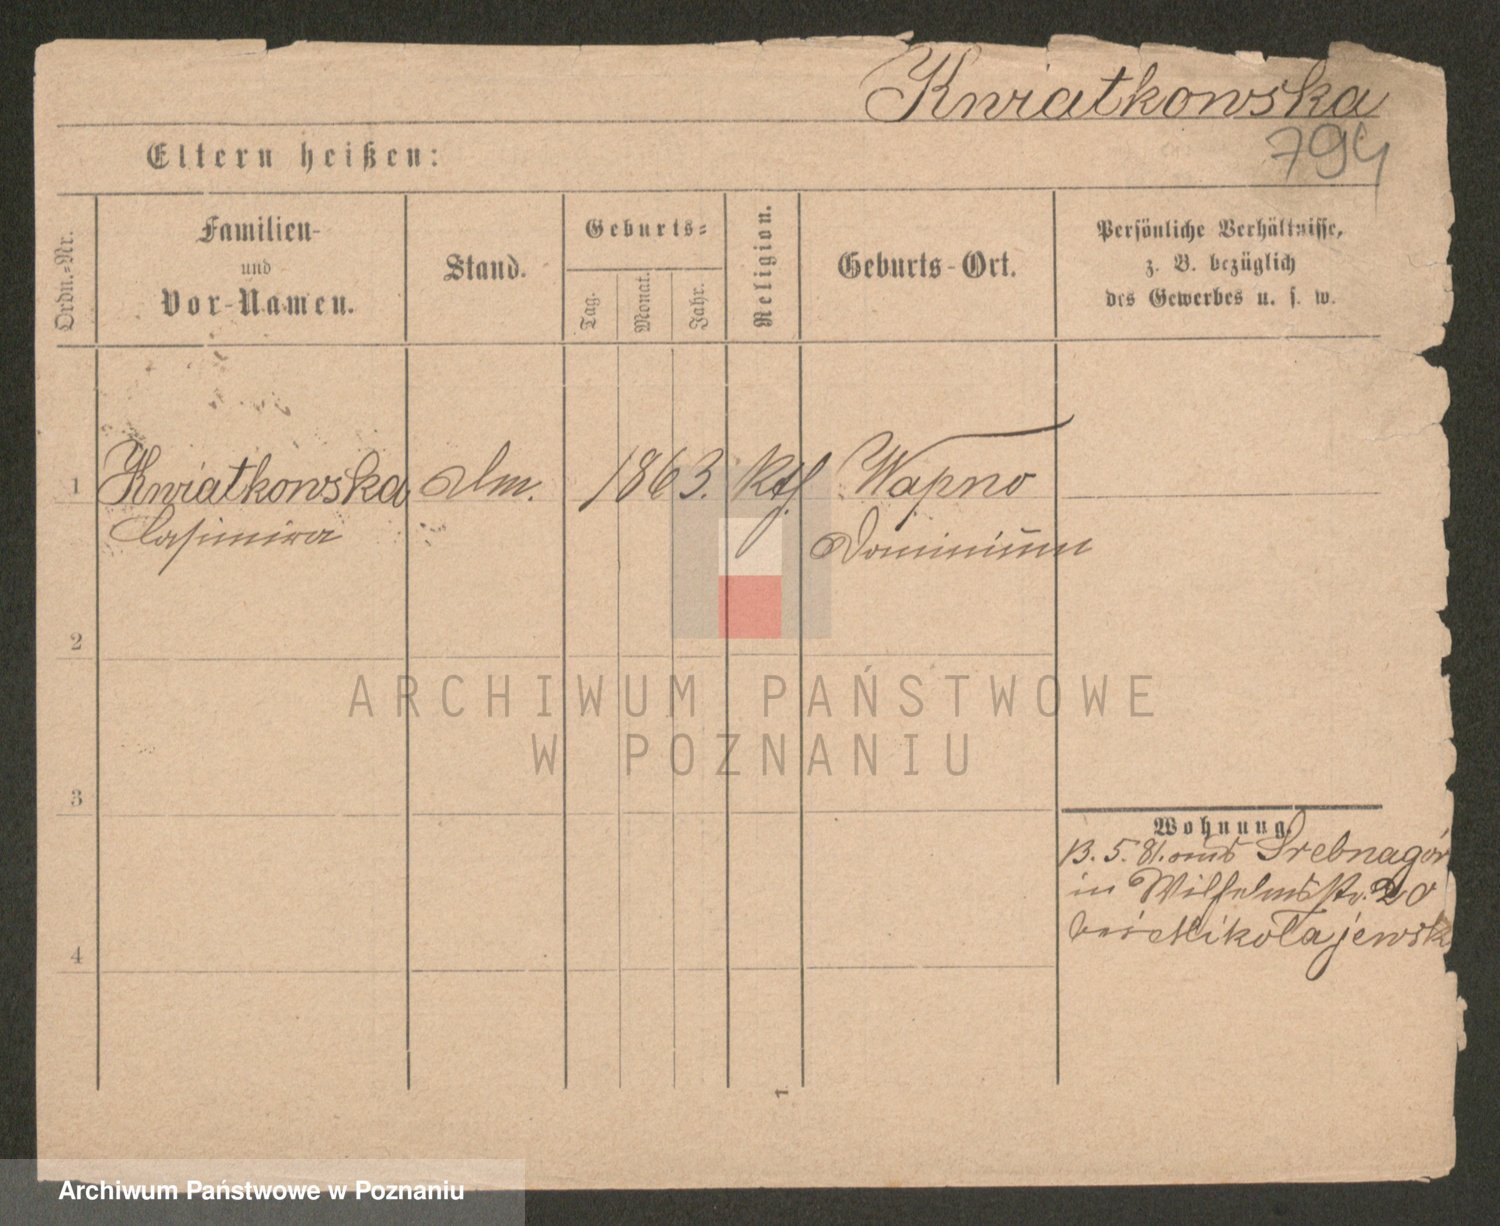 Kwiatkowska
794
Eltern heißen:
Ordn.=Nr.
Familien-
und
Vor-Namen.
Stand.
Geburts=
Tag.
Monat.
Jahr.
Religion.
Geburts-Ort.
Persönliche Verhältnisse,
z. B. bezüglich
des Gewerbes u. s. w.
1 Kwiatkowska 1863. Ktf. Wapno
Casimira Dominium
2
3
4
Wohnung.
13. 5. 81. aus Srebnagór
in Wilhelmsstr. 20
bei Mikołajewsk
1
ARCHIWUM PAŃSTWOWE
W POZNANIU
Archiwum Państwowe w Poznaniu